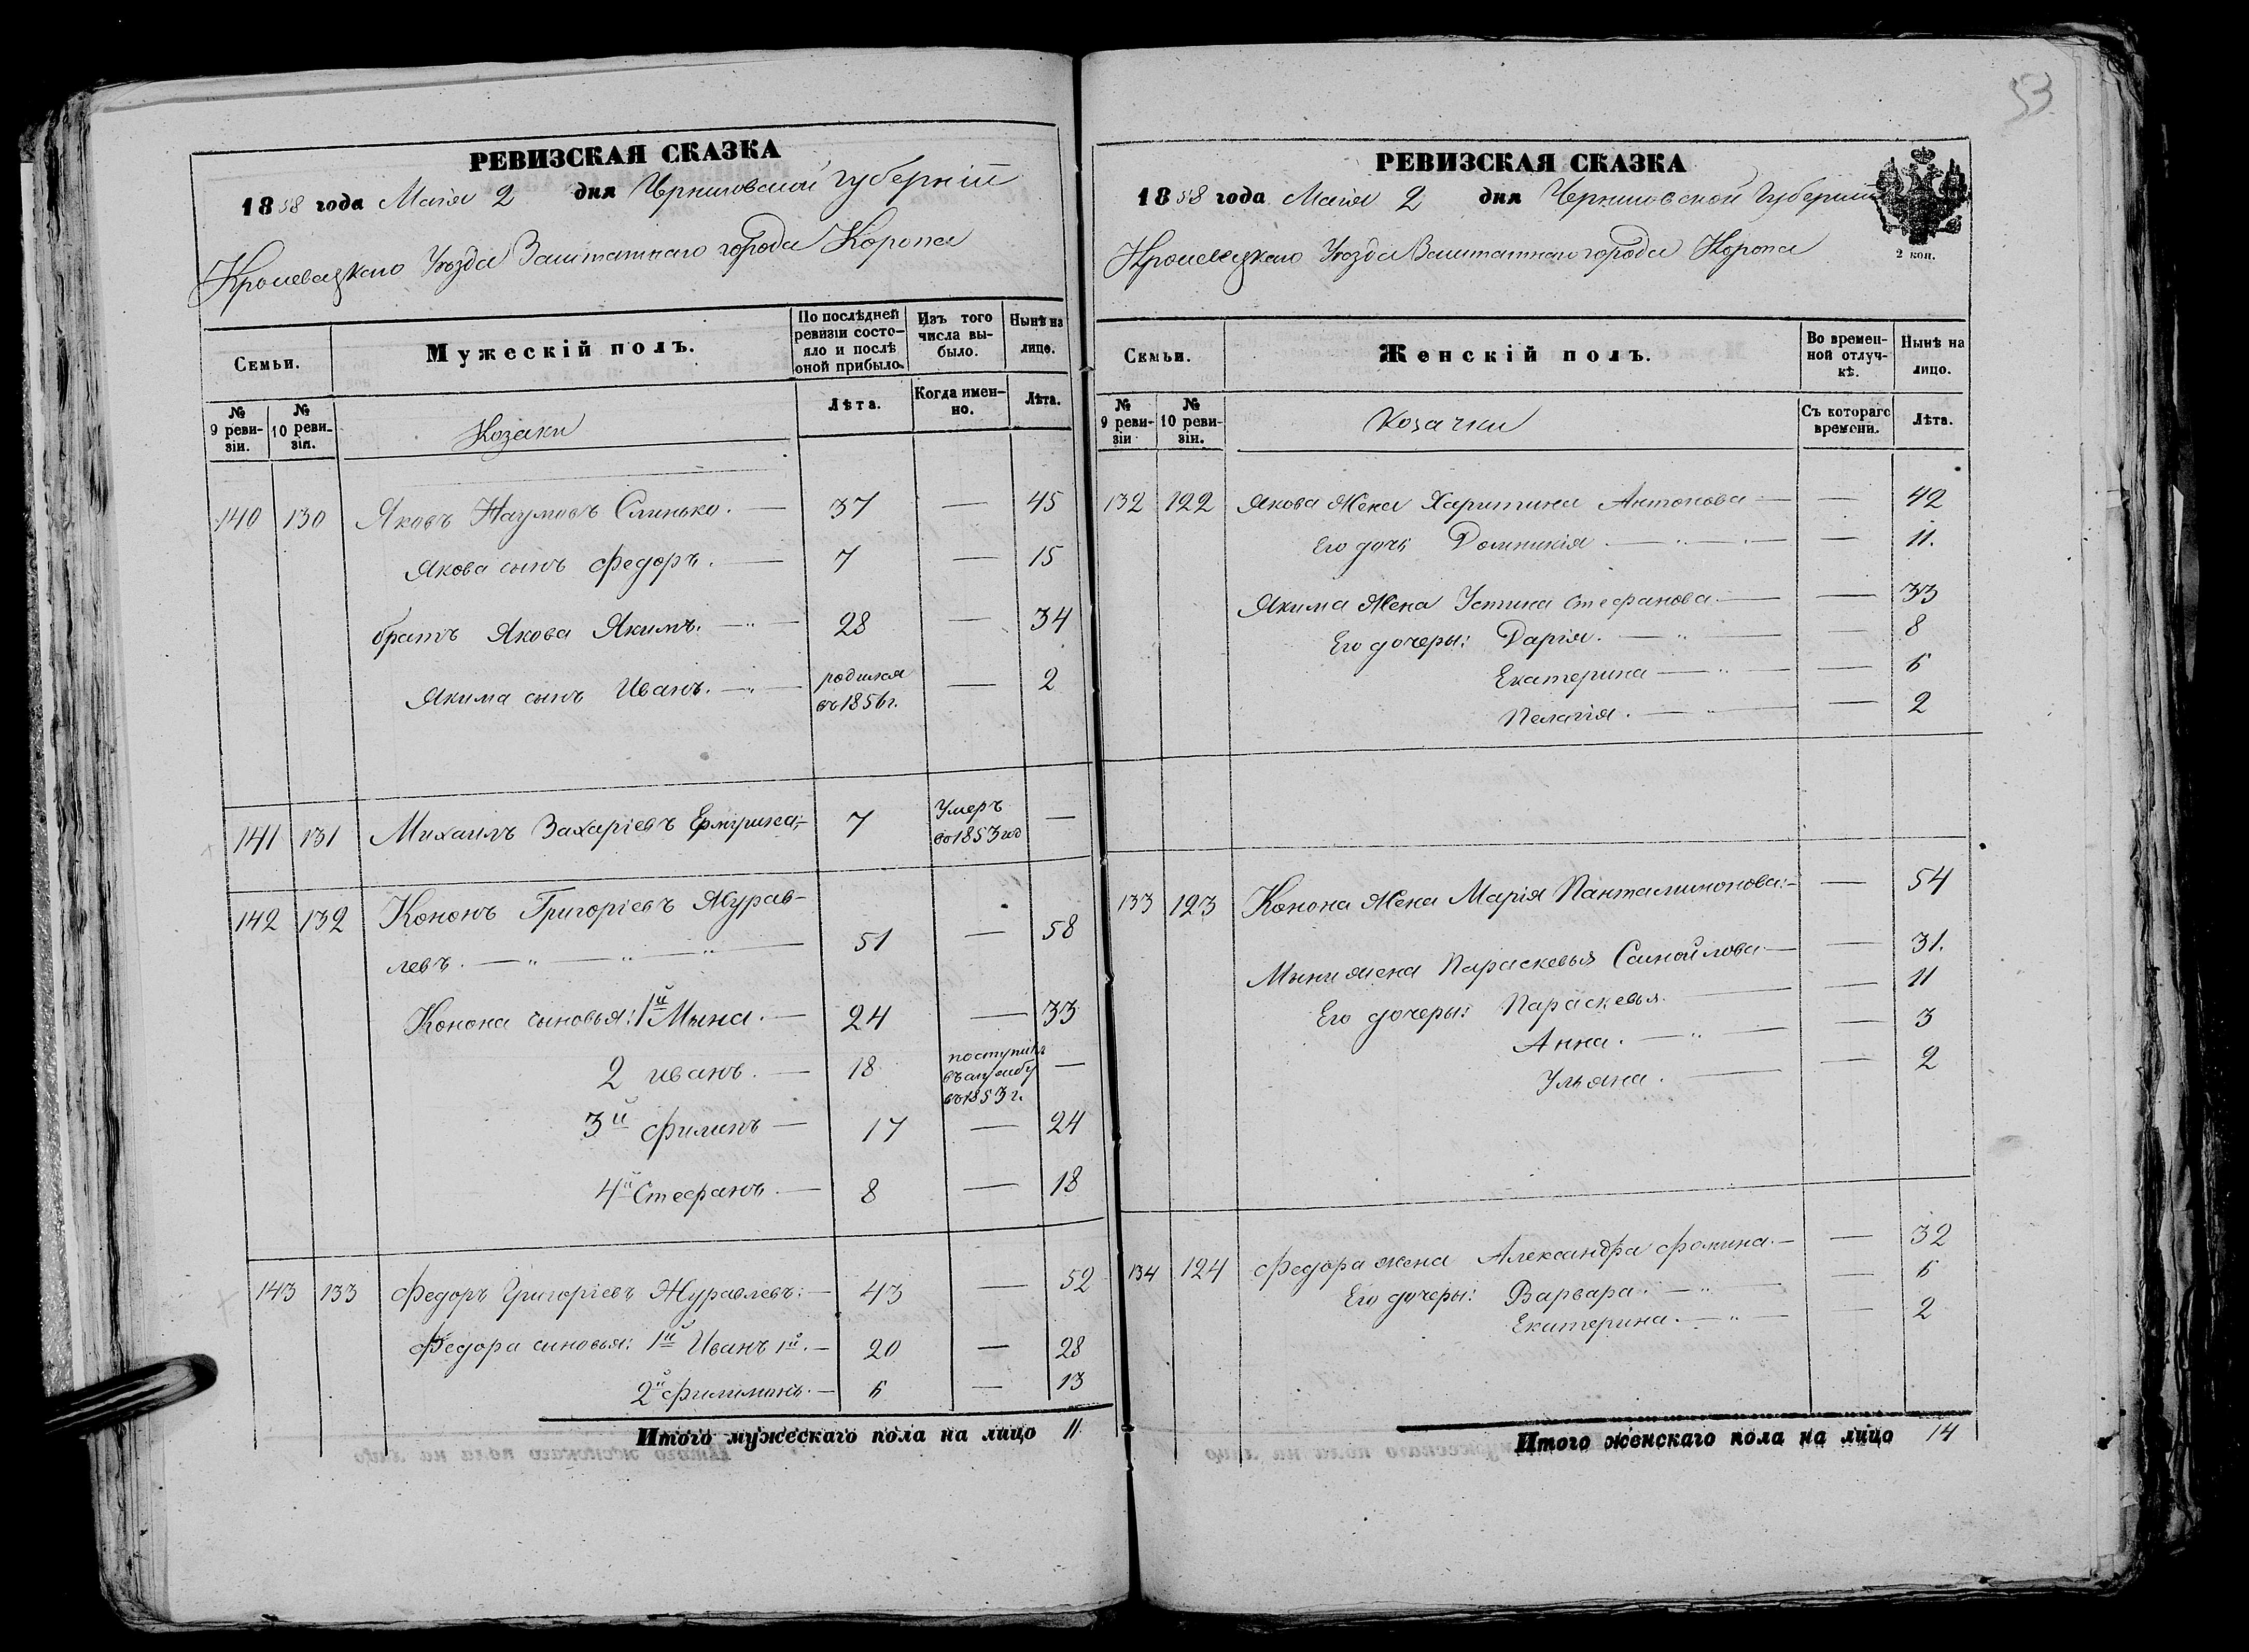 53
РЕВИЗСКАЯ СКАЗКА
1858 года Маія 2 дня Черниговской Губерніи
Кролевецкаго Уѣзда Заштатнаго города Коропа
Семьи.
Мужескій полъ.
По послѣдней ревизіи состо-яло и послѣ оной прибыло.
Изъ того числа вы-было.
Нынѣ на лице.
№ 9 реви-зіи.
№ 10 реви-зіи.
Козаки
Лѣта.
Когда имен-но.
Лѣта.
140 130 Яковъ Наумовъ Слинько. — 37 — 45
Якова сынъ Федоръ. — 7 — 15
братъ Якова Якимъ. — 28 — 34
Якима сынъ Иванъ. — родился въ 1856 г. — 2
141 131 Михаилъ Захаріевъ 7 Умеръ въ 1853 год —
142 132 Кононъ Григоріевъ Журав-
левъ. — 51 — 58
Конона сыновья: 1й Мына. — 24 — 33
2 иванъ. — 18 поступилъ въ службу въ 1853 г. —
3й Филипъ — 17 — 24
4й Стефанъ. — 8 — 18
143 133 Федоръ Григоріевъ Журавлевъ: — 43 — 52
Федора сыновья: 1й Иванъ 1й. — 20 — 28
2й Филимонъ. — 6 — 13
Итого мужескаго пола на лицо 11.
РЕВИЗСКАЯ СКАЗКА
1858 года Маія 2 дня Черниговской Губерніи
2 коп.
Кролевецкаго Уѣзда Заштатнаго города Коропа
Семьи.
Женскій полъ.
Во времен-ной отлуч-кѣ.
Нынѣ на лицо.
№ 9 реви-зіи
№ 10 реви-зіи.
Козачки
Съ котораго времени.
Лѣта.
132 122 Якова Жена Харитина Антонова — — 42
Его дочь Домникія. — — 11.
Якима Жена Устина Стефанова — — 33
Его дочеры: Дарія. — — 8
Екатерина — — 6
Пелагія. — — 2
133 123 Конона Жена Марія Пантелимонова: — — 54
Мыни жена Параскевья Самойлова — — 31.
Его дочеры: Параскевья. — — 11
Анна. — — 3
Ульяна. — — 2
134 124 Федора жена Александра Фомина. — — 32
Его дочеры: Варвара. — — 6
Екатерина. — — 2
Итого женскаго пола на лицо 14